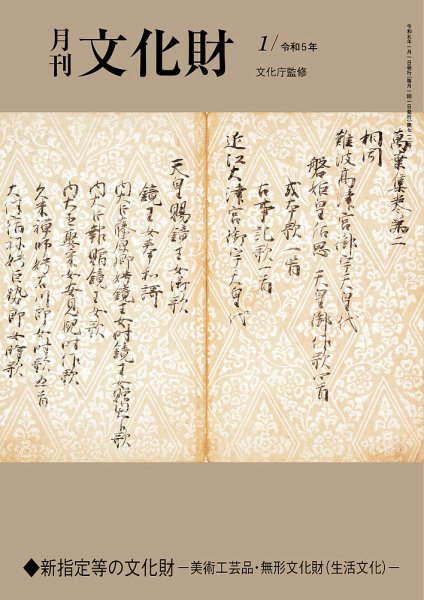 月刊 文化財
1/令和5年
文化庁監修
令和五年一月一日発行(毎月一回一日発行)第七一二号
萬葉集巻第二
相聞
難波高津宮御宇天皇代
磐姫皇后思 天皇御作歌一首
或本歌一首
古事記歌一首
近江大津宮御宇天皇代
天皇賜鏡王女御歌
鏡王女奉和謌
内大臣藤原卿娉鏡王女時鏡王女贈内大臣歌
内大臣報贈鏡王女歌
内大臣娶采女安見児時作歌
久米禅師娉石川郎女時歌五首
大伴宿祢娉巨勢郎女時歌
◆新指定等の文化財 ―美術工芸品・無形文化財(生活文化)―